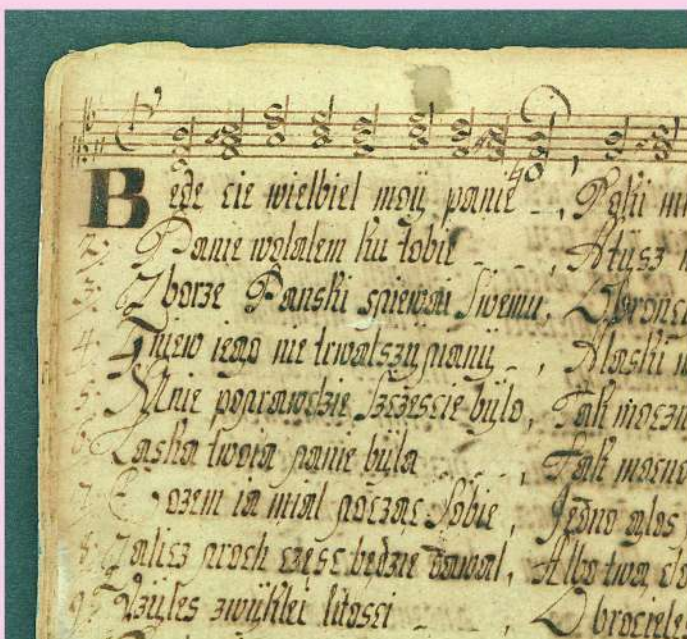 Bede cie wielbiel moy panie _ , Poki
2; Panie wolalem ku tobie _ _ , A tysz
3; Zborze Panski spiewai Swemu,
4; Gniew iego nie trwalszy niany _ , A laski
5; Mnie poprawdzie Szczescie bylo, Tak moczn
6; Laska twoia panie byla _ _ , Tak mocno
7; Cozem ia mial poczac Sobie, Jedno glos
8; Zalisz proch czesc bedzie dawal, Albo twa
9; Uzyles zwyklei litosci _ _ ,